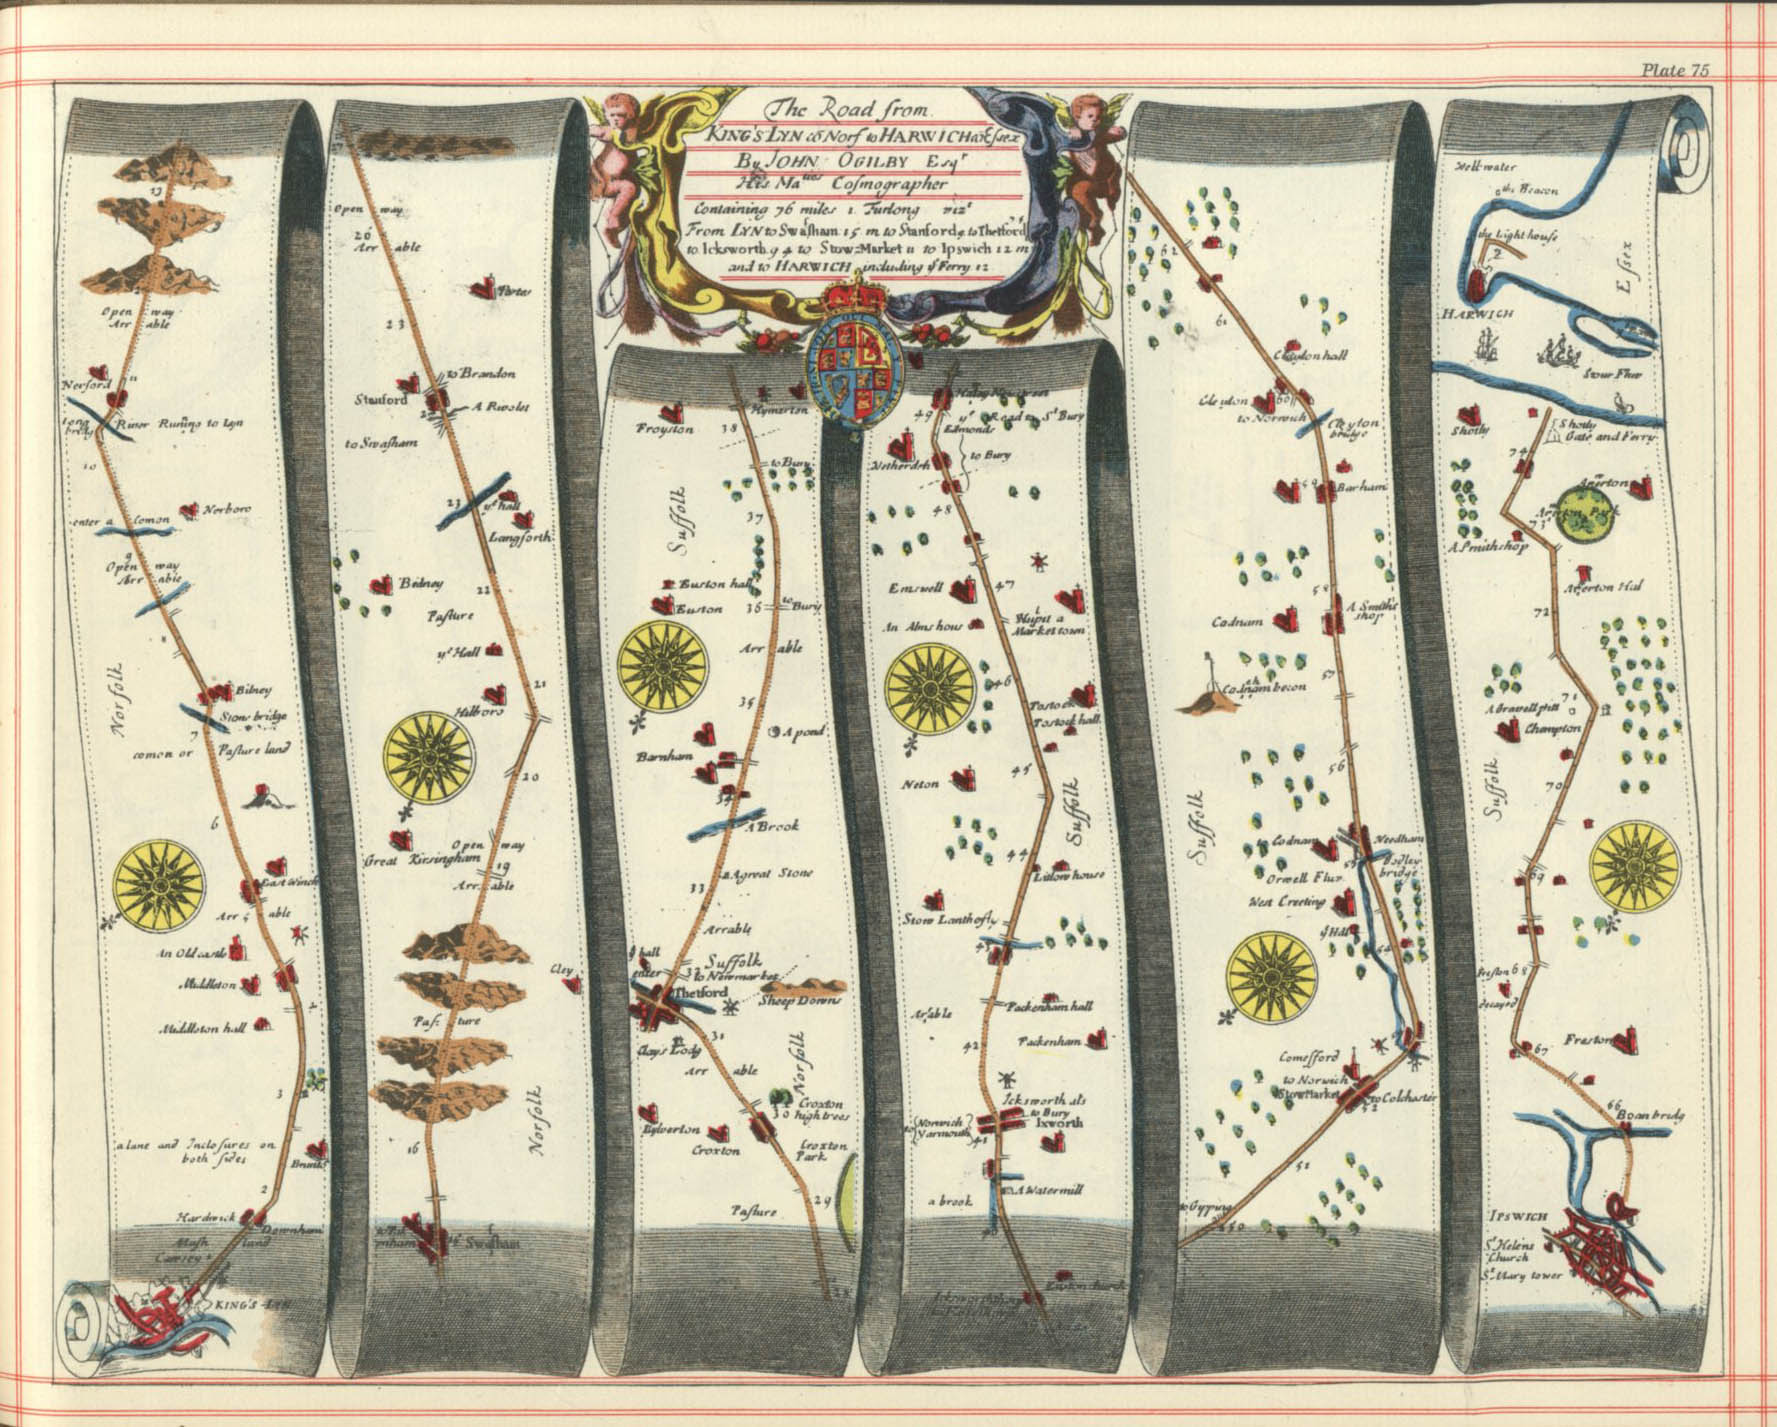 Plate 75
The Road from
KING'S LYN co Norf to HARWICH co Essex
By JOHN OGILBY Esqr
His Maties Cosmographer
Containing 76 miles 1 Furlong vizt
From LYN to Swafham 15 m to Stanford 9 to Thetford 7'5
to Icksworth 9'4 to Stow=Market 11 to Ipswich 12 m
and to HARWICH including ye Ferry 12
13
Open way
Arr able
Nerford
11
long bridg
River Runing to Lyn
10
Nerboro
enter a Comon
9
Open way
Arr able
8
Norfolk
Bilney
Stone bridge
7
comon or Pasture land
6
East Winch
Arr 5 able
An Old castle
Middleton
4
Middleton hall
3
a lane and Inclosures on
both sides
2
Hardwick
Downham
Mash land
Cawsey
KING'S LYN
27
Open way
26
Arr able
Portes
23
to Brandon
Stanford
A Rivolet
to Swafham
23
ye hall
Langforth
Bidney
22
Pasture
ye Hall
21
Hilboro
20
Great Kirsingham
Open way
19
Arr able
Cley
Pas ture
Norfolk
16
15
Swafham
Froyston
38
Hymerton
to Bury
Suffolk
37
Euston hall
Euston
36
to Bury
Arr able
35
A pond
Barnham
34
A Brook
33
A great Stone
Arrable
ye hall
enter
Suffolk
32
to Newmarket
Thetford
Sheep Downs
31
Clays Lodg
Arr able
Norfolk
Croxton
high trees
30
Kylverton
Croxton
Croxton
Park
29
Pasture
28
49
Haley New street
ye Road to St Bury
Edmonds
Netherdsh
to Bury
48
Emswell
47
An Alms hous
Wulpit a
Market town
46
Tostock
Tostock hall
45
Neton
Suffolk
44
Litlow house
Stow Lanthofly
43
Packenham hall
Arable
42
Packenham
Icksworth als
to Bury
Ixworth
to Norwich
Yarmouth
41
A Watermill
a brook
40
62
61
Claydon hall
Cleydon
60
to Norwich
Cleyton
bridge
59
Barham
58
Codnam
A Smiths
shop
57
Codnam becon
56
to Codnam
Needham
55
Bosley
bridge
Orwell Fluv
West Creeting
ye Hall
54
Suffolk
Comefford
to Norwich
Stowmarket
to Colchester
52
51
to Gypping
50
Well water
the Beacon
the Light house
2
Essex
HARWICH
Stour Fluv
Shotly
Shotly
Gate and Ferry
74
Arwerton
Arwerton Park
73
A Smith shop
Arwerton Hal
72
71
A Gravell pitt
Champton
Suffolk
70
69
Preston
68
decayed
Freston
67
66
Boan bridg
IPSWICH
St Helens
Church
St Mary tower